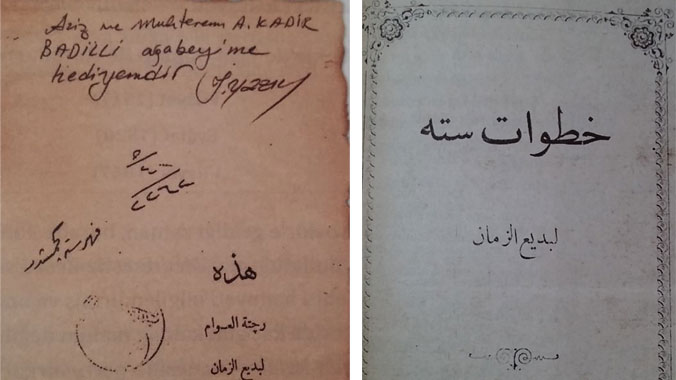 Aziz ve Muhterem A. KADİR
BADILLI agabeyime
hediyemdir
هذه
رچتة العوام
لبديع الزمان
خطوات سته
لبديع الزمان